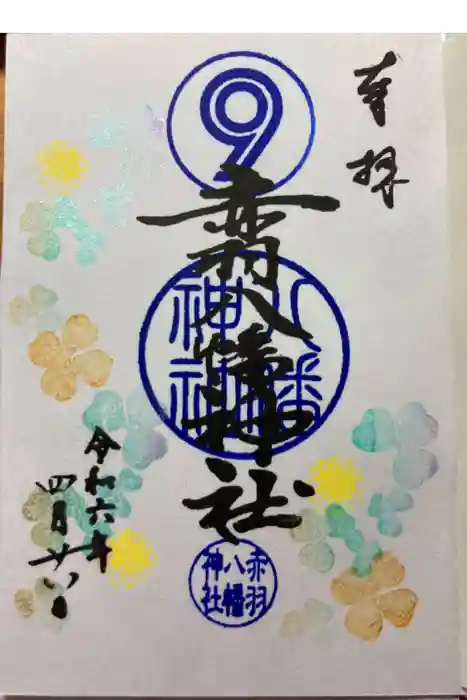 奉拝
9
赤羽八幡神社
八幡神社
赤羽八幡神社
令和六年
四月廿八日